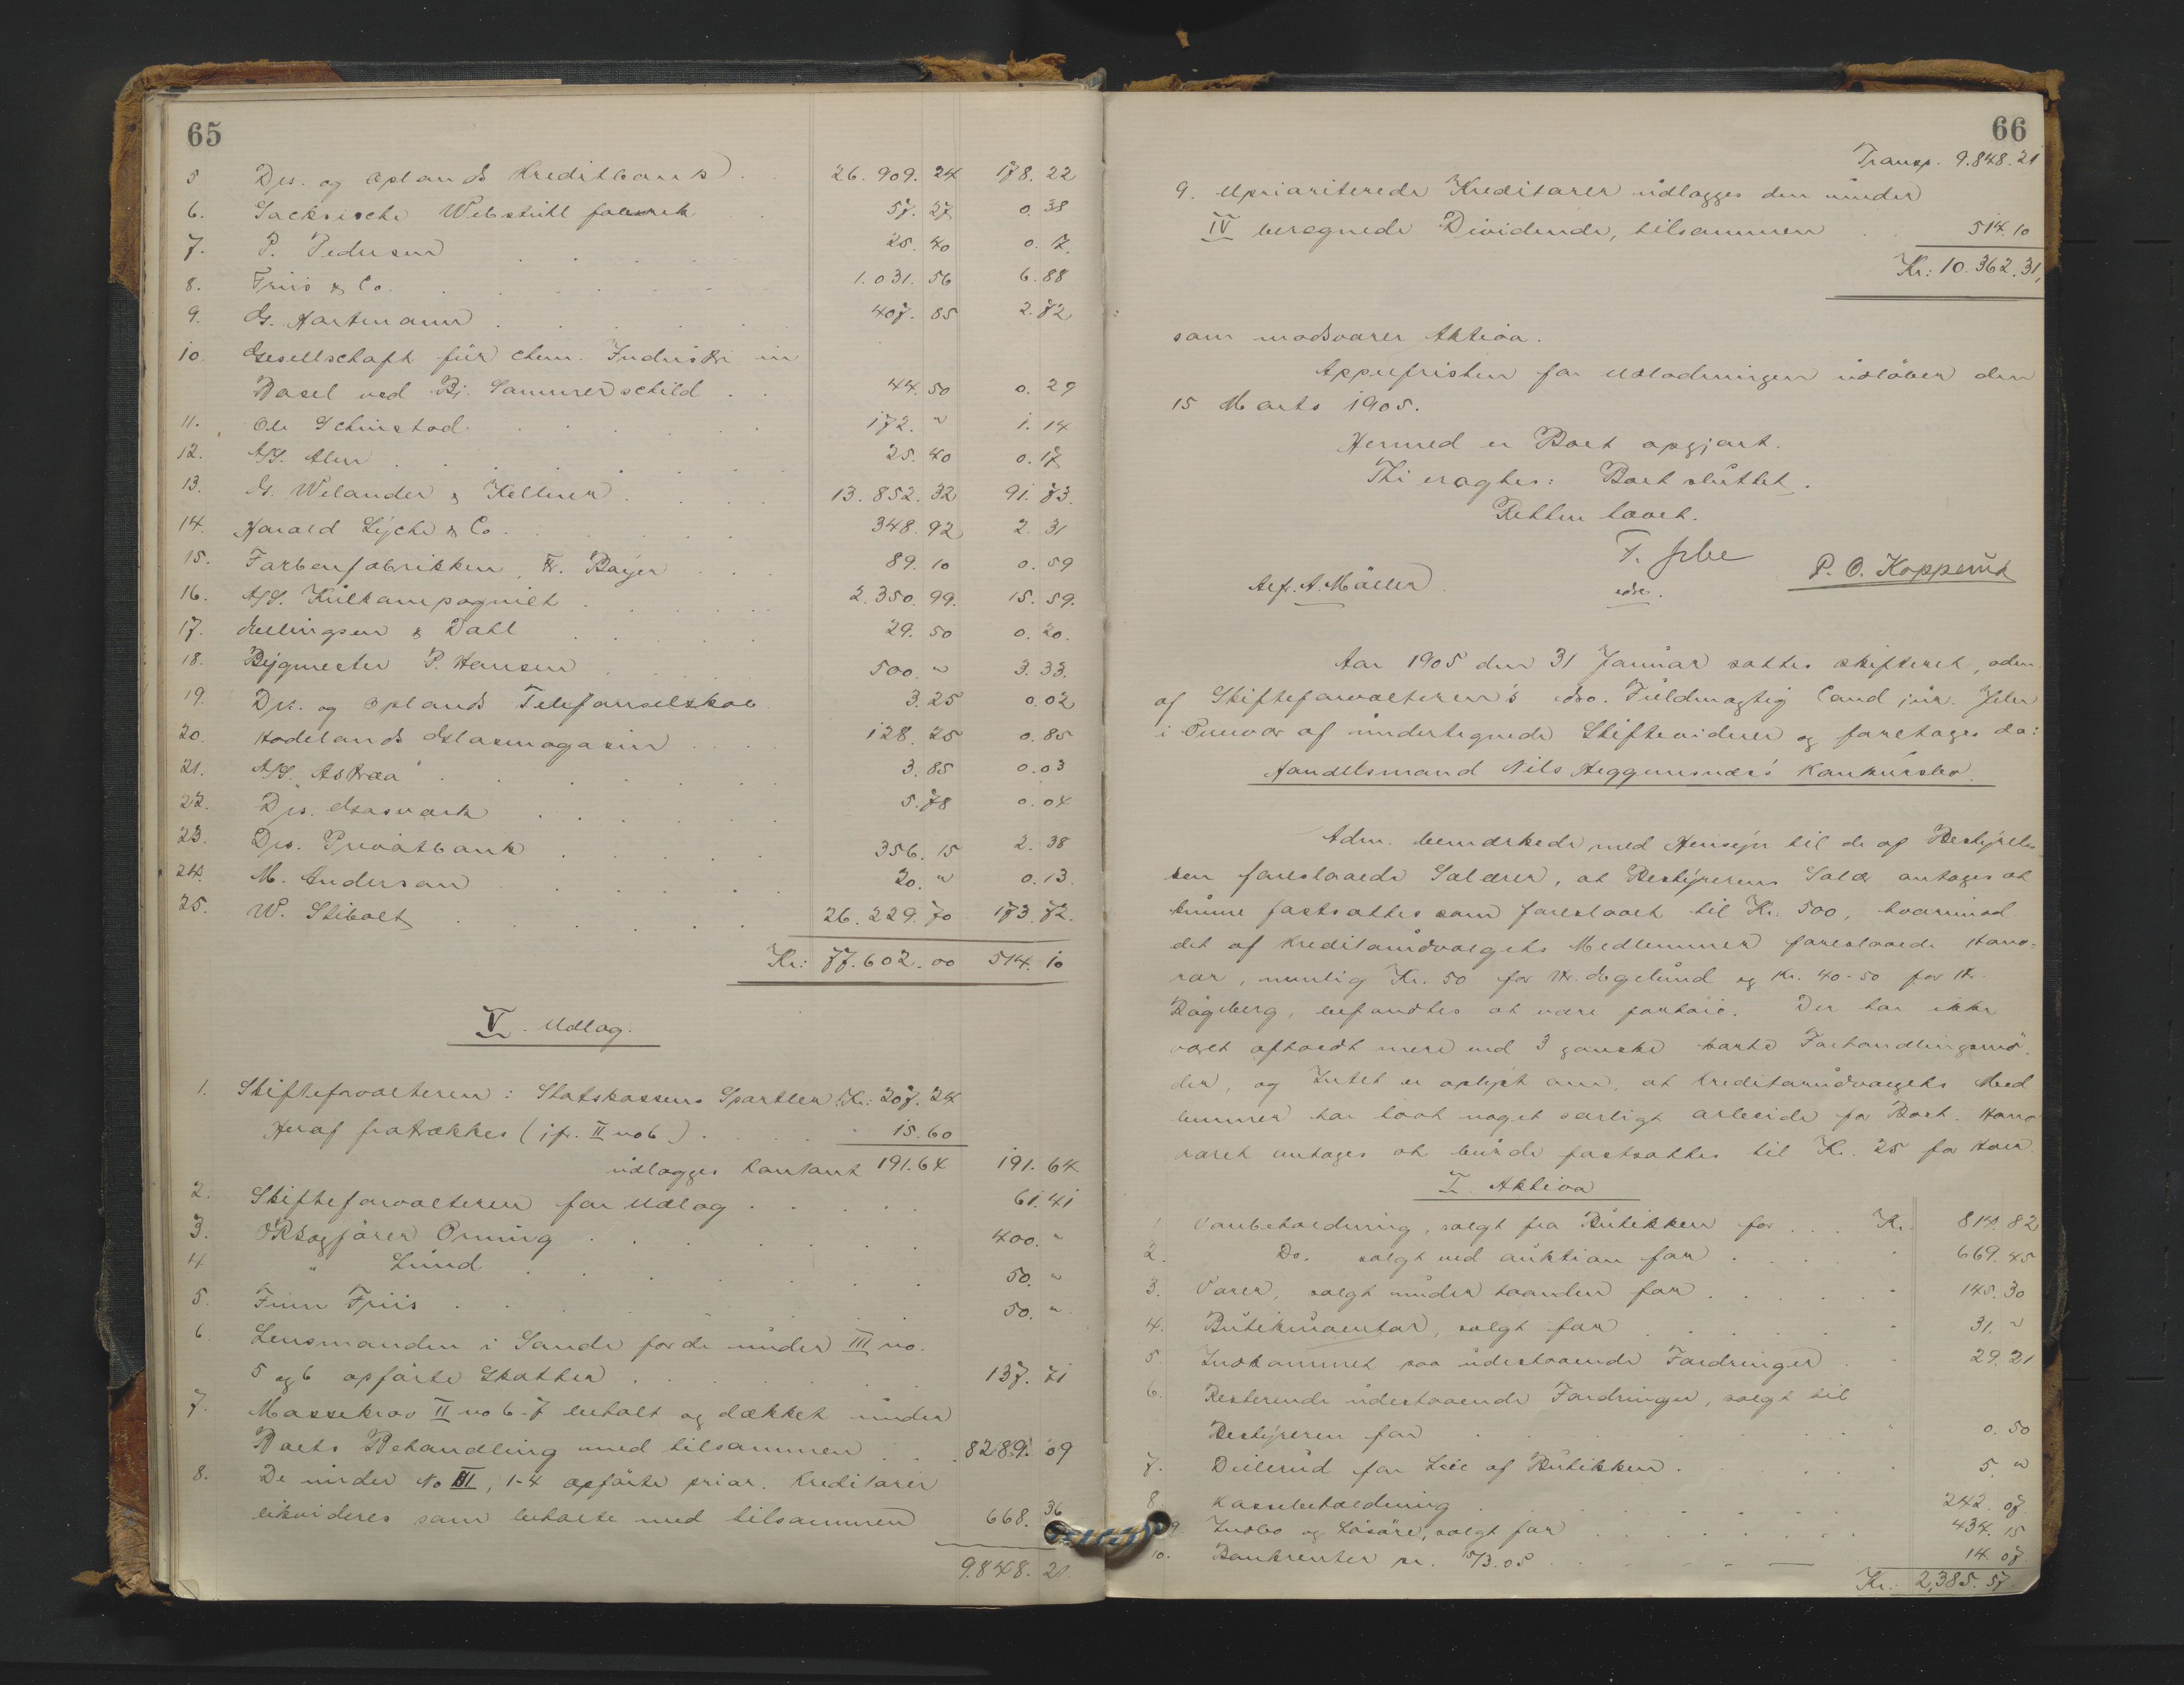 65
5 Drs. og Oplands Kreditbank . 26.909.24 178.22
6. Sacksische Webstuhl fabrik . 57.27 0.38
7. P. Pedersen . . . . . 25.40 0.17
8. Friis & Co. . . . . . . 1.031.56 6.88
9. G. Hartmann . . . . . . 407.85 2.72
10. Gesellschaft für chem. Industri in
Basel ved Bj. Sammerschild . . 44.50 0.29
11. Ole Schiestad . . . . . 172. " 1.14
12. A/S. Alm . . . . . . . 25.40 0.17
13. G. Welander & Kellner . . . . 13.852.32 91.73.
14. Harald Lyche & Co. . . . . . 348.92 2.31
15. Farbenfabrikken, Fr. Bayer . . . 89.10 0.59
16. A/S. Kulkompagniet . . . . . 2.350.99. 15.59.
17. Ellingsen & Dahl . . . . . 29.50 0.20.
18. Bygmester P. Hansen . . . . 500. " 3.33.
19. Drs. og Oplands Telefonselskab 3.25 0.02
20. Hadelands Glasmagasin . . . . 128.25 0.85
21. A/S. Astræa . . . . . . 3.85 0.03
22. Drs. Gasværk . . . . . . 5.78 0.04
23. Drs. Privatbank . . . . . 356.15 2.38
24. M. Anderson . . . . . . 20. " 0.13.
25. W. Stibolt . . . . . . 26.229.70 173.72.
Kr: 77.602.00 514.10
V. Udlæg.
1. Skifteforvalteren: Statskassens Sportler Kr: 207.24
Heraf fratrækkes (jfr. II no 6) . . . 15.60
udlægges kontant 191.64 191.64
2. Skifteforvalteren for Udlæg . . . . . 61.41
3. ORsagfører Orning . . . . . . . 400. "
4 " Lund . . . . . . . 50. "
5. Finn Friis . . . . . . . 50. "
6. Lensmanden i Sande for de under III no.
5 og 6 opførte Skatter . . . . . . 137.71
7. Massekrav II no 6-7 betalt og dækket under
Boets Behandling med tilsammen . . . 8289.09
8. De under No III, 1-4 opførte prior. Kreditorer
likvideres som betalte med tilsammen 668.36
9.848.21.
66
Transp. 9.848.21
9. Uprioriterede Kreditorer udlægges den under
IV beregnede Dividende, tilsammen . . 514.10
Kr: 10.362.31,
som modsvarer Aktiva.
Appelfristen for Udlodningen udløber den
15 Marts 1905.
Hermed er Boet opgjort.
Thi eragtes: Boet sluttet.
Retten hævet.
Alf. A. Møller
edsv.
P. O. Kopperud
Aar 1905 den 31 Januar sattes skifteret, adm.
af Skifteforvalteren's edsv. Fuldmægtig Cand jur.
i Overvær af undertegnede Skiftevidner og foretages da:
Handelsmand Nils Heggenesnæs's Konkursbo.
Adm. bemærkede med Hensyn til de af Bestyrel-
sen foreslaaede Salærer, at Bestyrerens Salær antages at
kunne fastsættes som foreslaaet til Kr. 500, hvorimod
det af Kreditorudvalgets Medlemmer foreslaaede Hono-
rar, nemlig Kr. 50 for Hr. Hegelund og Kr. 40-50 for Hr.
Rogeberg, befandtes at være forhøit. Der har ikke
været afholdt mere end 3 ganske korte Forhandlingsmø-
der, og Intet er oplyst om, at Kreditorudvalgets Med
lemmer har havt noget særligt arbeide for Boet. Hono
raret antages at burde fastsættes til Kr. 25 for hver.
I. Aktiva
1. Varebeholdning, solgt fra Butikken for . . . Kr. 814.82
2. Do. solgt ved auktion for . . . . " 669.45
3. Varer, solgt under haanden for . . . . . " 145.30
4. Butikinventar, solgt for . . . . . " 31. "
5. Indkommet paa udestaaende Fordringer . . " 29.21
6. Resterende udestaaende Fordringer, solgt til
Bestyreren for . . . . . . " 0.50
7. Deilerud for Leie af Butikken . . . . " 5. "
8. Kassebeholdning . . . . . . . 242.07
9. Indbo og Løsøre, solgt for . . . . . . . 434.15
10. Bankrenter pr. 15/3.05 . . . . — 14.07
Kr.: 2,385.57.